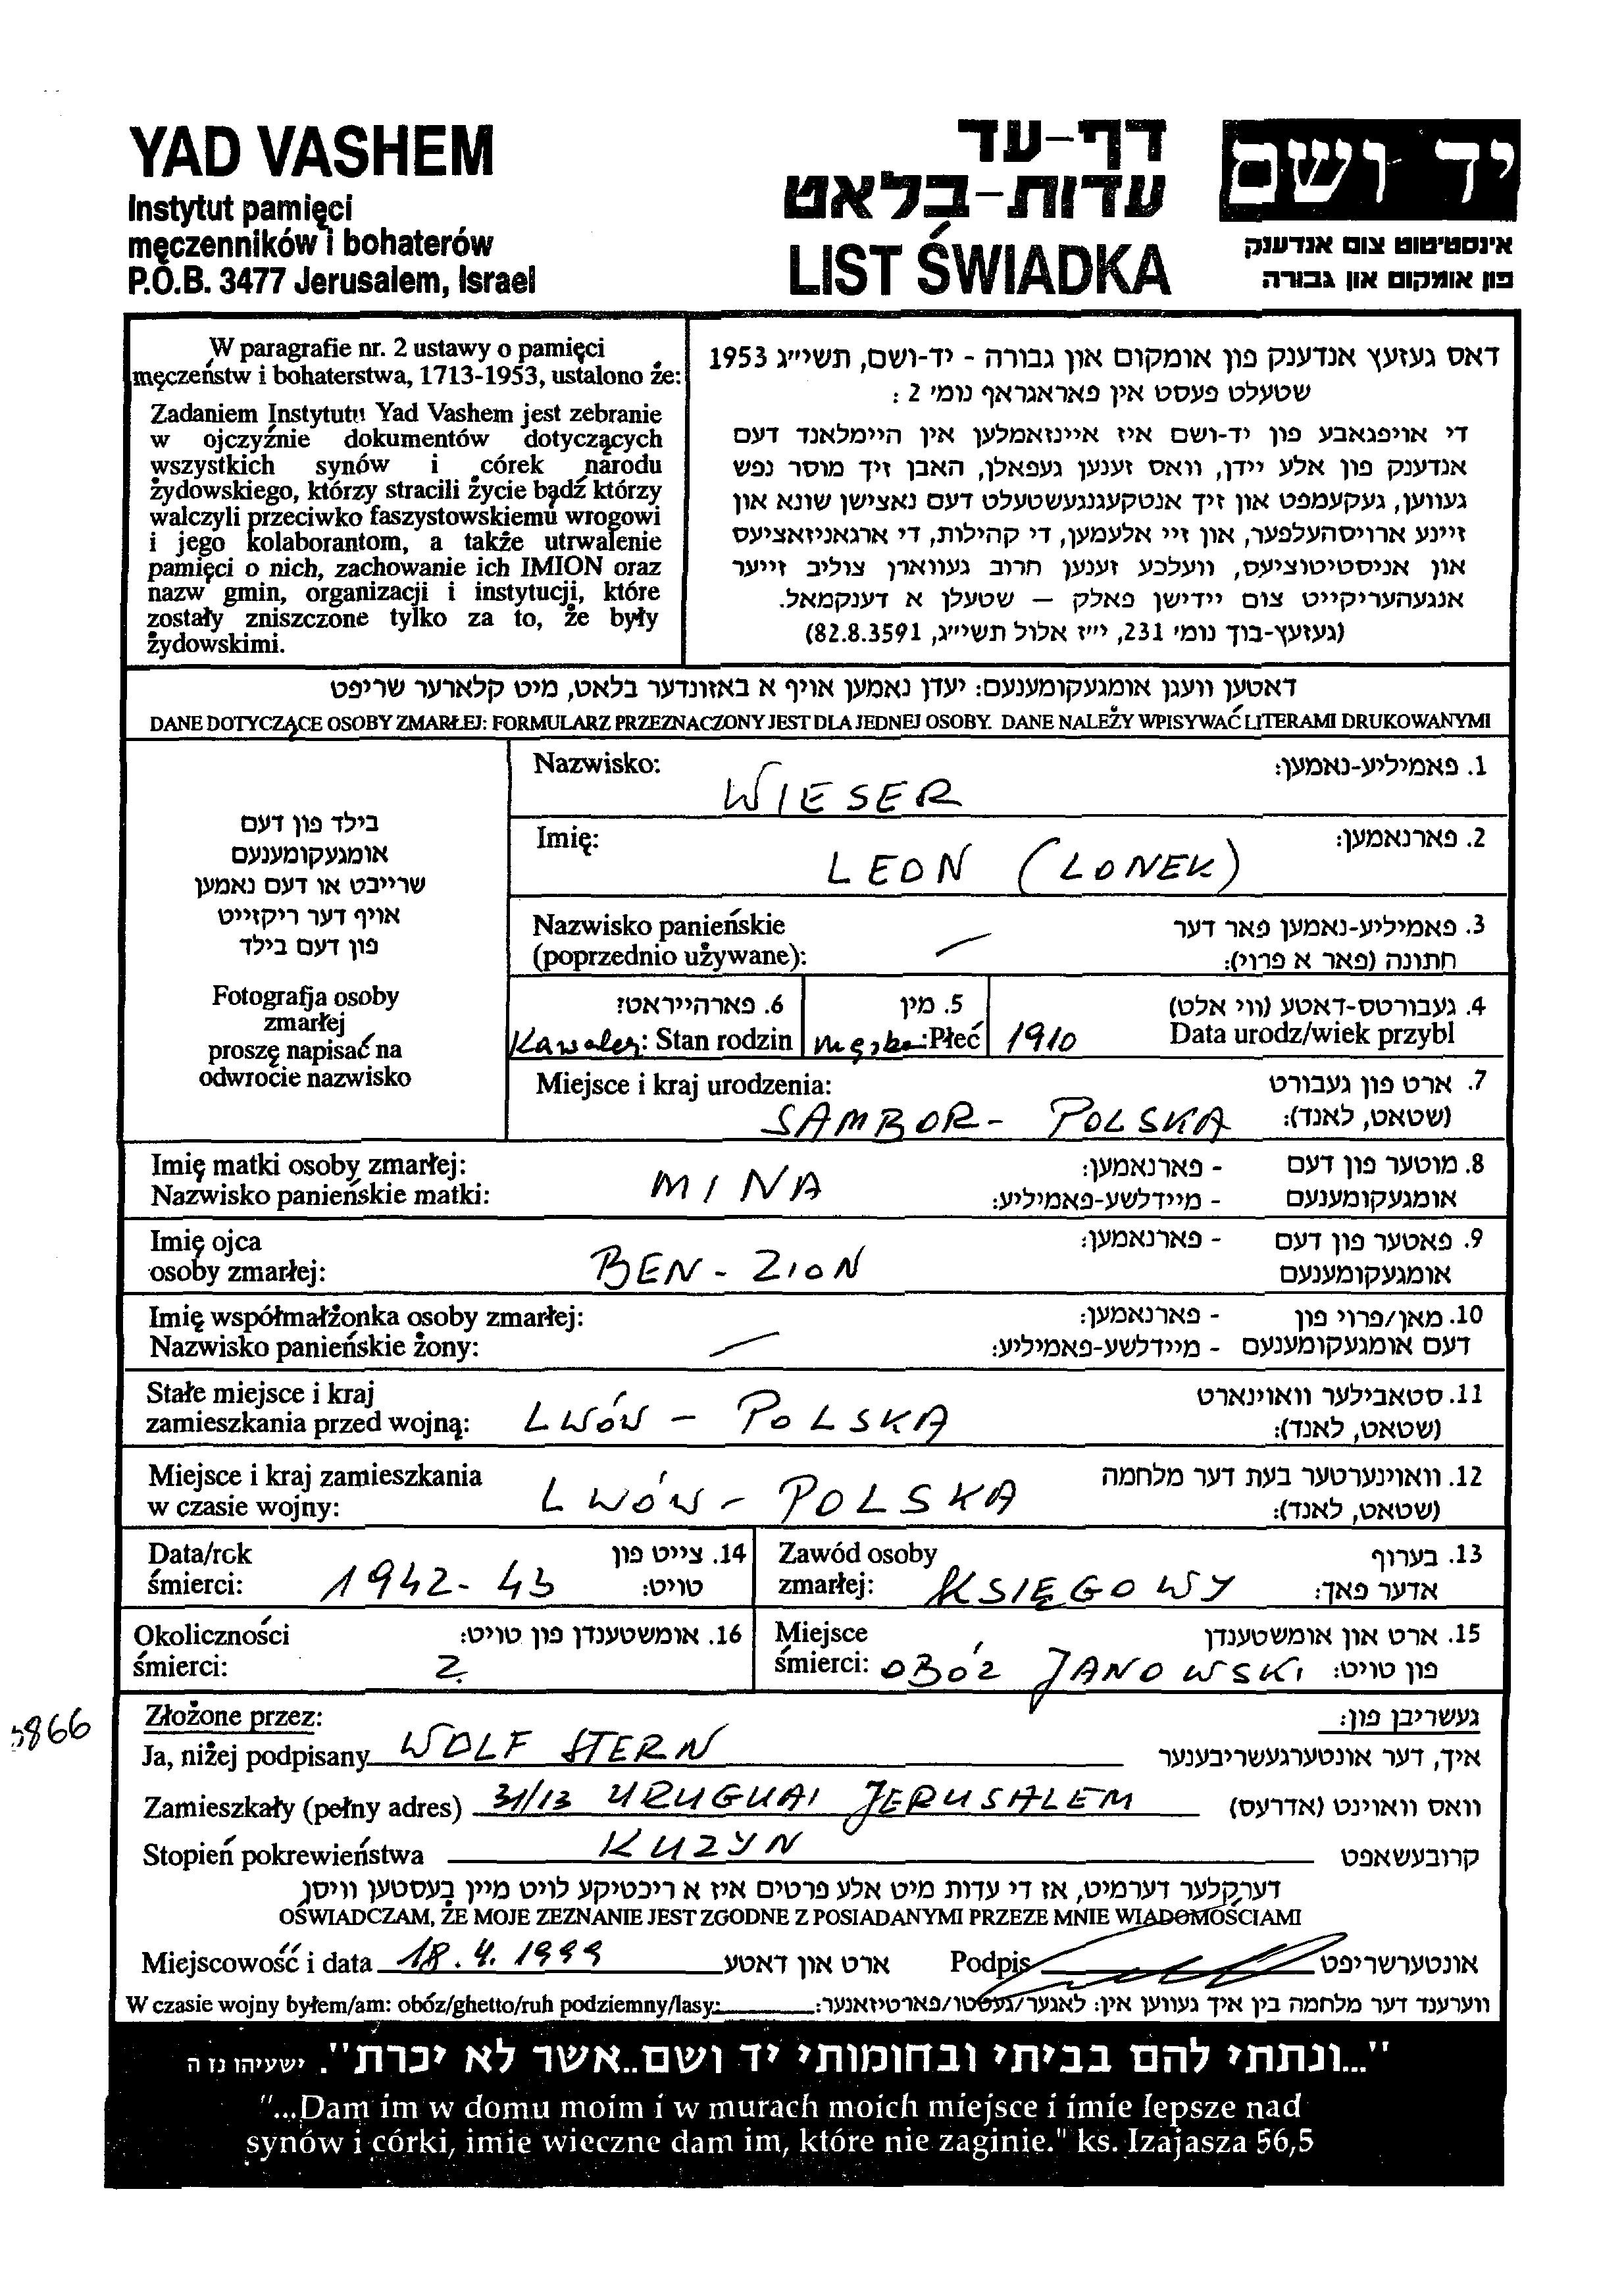 YAD VASHEM
Instytut pamięci
męczenników i bohaterów
P.O.B. 3477 Jerusalem, Israel
דף-עד
עדות-בלאט
LIST ŚWIADKA
יד ושם
אינסטיטוט צום אנדענק
פון אומקום און גבורה
W paragrafie nr. 2 ustawy o pamięci
męczeństw i bohaterstwa, 1713-1953, ustalono że:
Zadaniem Instytutu Yad Vashem jest zebranie
w ojczyźnie dokumentów dotyczących
wszystkich synów i córek narodu
żydowskiego, którzy stracili życie bądź którzy
walczyli przeciwko faszystowskiemu wrogowi
i jego kolaborantom, a także utrwalenie
pamięci o nich, zachowanie ich IMION oraz
nazw gmin, organizacji i instytucji, które
zostały zniszczone tylko za to, że były
żydowskimi.
דאס געזעץ אנדענק פון אומקום און גבורה - יד-ושם, תשי״ג 1953
שטעלט פעסט אין פאראגראף נומ׳ 2 :
די אויפגאבע פון יד-ושם איז איינזאמלען אין היימלאנד דעם
אנדענק פון אלע יידן, וואס זענען געפאלן, האבן זיך מוסר נפש
געווען, געקעמפט און זיך אנטקעגנגעשטעלט דעם נאצישן שונא און
זיינע ארויסהעלפער, און זיי אלעמען, די קהילות, די ארגאניזאציעס
און אניסטיטוציעס, וועלכע זענען חרוב געווארן צוליב זייער
אנגעהעריקייט צום יידישן פאלק – שטעלן א דענקמאל.
(געזעץ-בוך נומ׳ 231, י״ז אלול תשי״ג, 82.8.3591)
דאטען וועגן אומגעקומענעם: יעדן נאמען אויף א באזונדער בלאט, מיט קלארער שריפט
DANE DOTYCZĄCE OSOBY ZMARŁEJ: FORMULARZ PRZEZNACZONY JEST DLA JEDNEJ OSOBY. DANE NALEŻY WPISYWAĆ LITERAMI DRUKOWANYMI
בילד פון דעם
אומגעקומענעם
שרייבט או דעם נאמען
אויף דער ריקזייט
פון דעם בילד
Fotografja osoby
zmarłej
proszę napisać na
odwrocie nazwisko
Nazwisko: WIESER 1. פאמיליע-נאמען:
Imię: LEON (LONEK) 2. פארנאמען:
Nazwisko panieńskie 3. פאמיליע-נאמען פאר דער
(poprzednio używane): — חתונה (פאר א פרוי):
6. פארהייראט? 5. מין 4. געבורטס-דאטע (ווי אלט)
Kawaler: Stan rodzin męska: Płeć 1910 Data urodz/wiek przybl
Miejsce i kraj urodzenia: 7. ארט פון געבורט
SAMBOR - POLSKA (שטאט, לאנד):
Imię matki osoby zmarłej: MINA - פארנאמען: 8. מוטער פון דעם
Nazwisko panieńskie matki: - מיידלשע-פאמיליע: אומגעקומענעם
Imię ojca - פארנאמען: 9. פאטער פון דעם
osoby zmarłej: BEN - ZION אומגעקומענעם
Imię współmałżonka osoby zmarłej: - פארנאמען: 10. מאן/פרוי פון
Nazwisko panieńskie żony: — - מיידלשע-פאמיליע: דעם אומגעקומענעם
Stałe miejsce i kraj 11. סטאבילער וואוינארט
zamieszkania przed wojną: LWÓW - POLSKA (שטאט, לאנד):
Miejsce i kraj zamieszkania 12. וואוינערטער בעת דער מלחמה
w czasie wojny: LWÓW - POLSKA (שטאט, לאנד):
Data/rok 14. צייט פון Zawód osoby 13. בערוף
śmierci: 1942-43 טויט: zmarłej: KSIĘGOWY אדער פאך:
Okoliczności 16. אומשטענדן פון טויט: Miejsce 15. ארט און אומשטענדן
śmierci: ? śmierci: OBÓZ JANOWSKI פון טויט:
Złożone przez: געשריבן פון:
Ja, niżej podpisany WOLF STERN איך, דער אונטערגעשריבענער
Zamieszkały (pełny adres) 31/13 URUGUAI JERUSALEM וואס וואוינט (אדרעס)
Stopień pokrewieństwa KUZYN קרובעשאפט
דערקלער דערמיט, אז די עדות מיט אלע פרטים איז א ריכטיקע לויט מיין בעסטען וויסן
OŚWIADCZAM, ŻE MOJE ZEZNANIE JEST ZGODNE Z POSIADANYMI PRZEZE MNIE WIADOMOŚCIAMI
Miejscowość i data 18.4.1999 ארט און דאטע Podpis אונטערשריפט
W czasie wojny byłem/am: obóz/ghetto/ruh podziemny/lasy: ווערענד דער מלחמה בין איך געווען אין: לאגער/געטטו/פארטיזאנער:
"...ונתתי להם בביתי ובחומותי יד ושם..אשר לא יכרת". ישעיהו נז ה
"...Dam im w domu moim i w murach moich miejsce i imie lepsze nad
synów i córki, imie wieczne dam im, które nie zaginie." ks. Izajasza 56,5